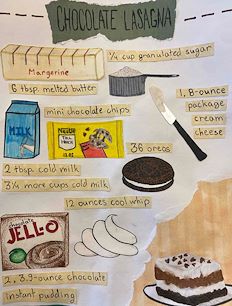 CHOCOLATE LASAGNA
1/4 cup granulated sugar
Margerine
6 tbsp. melted butter
1, 8-ounce
package
cream
cheese
mini chocolate chips
MILK
Nestle
TOLL HOUSE
36 oreos
2 tbsp. cold milk
3 1/4 more cups cold milk
12 ounces cool whip
chocolate
JELL-O
2, 3.9-ounce chocolate
instant pudding